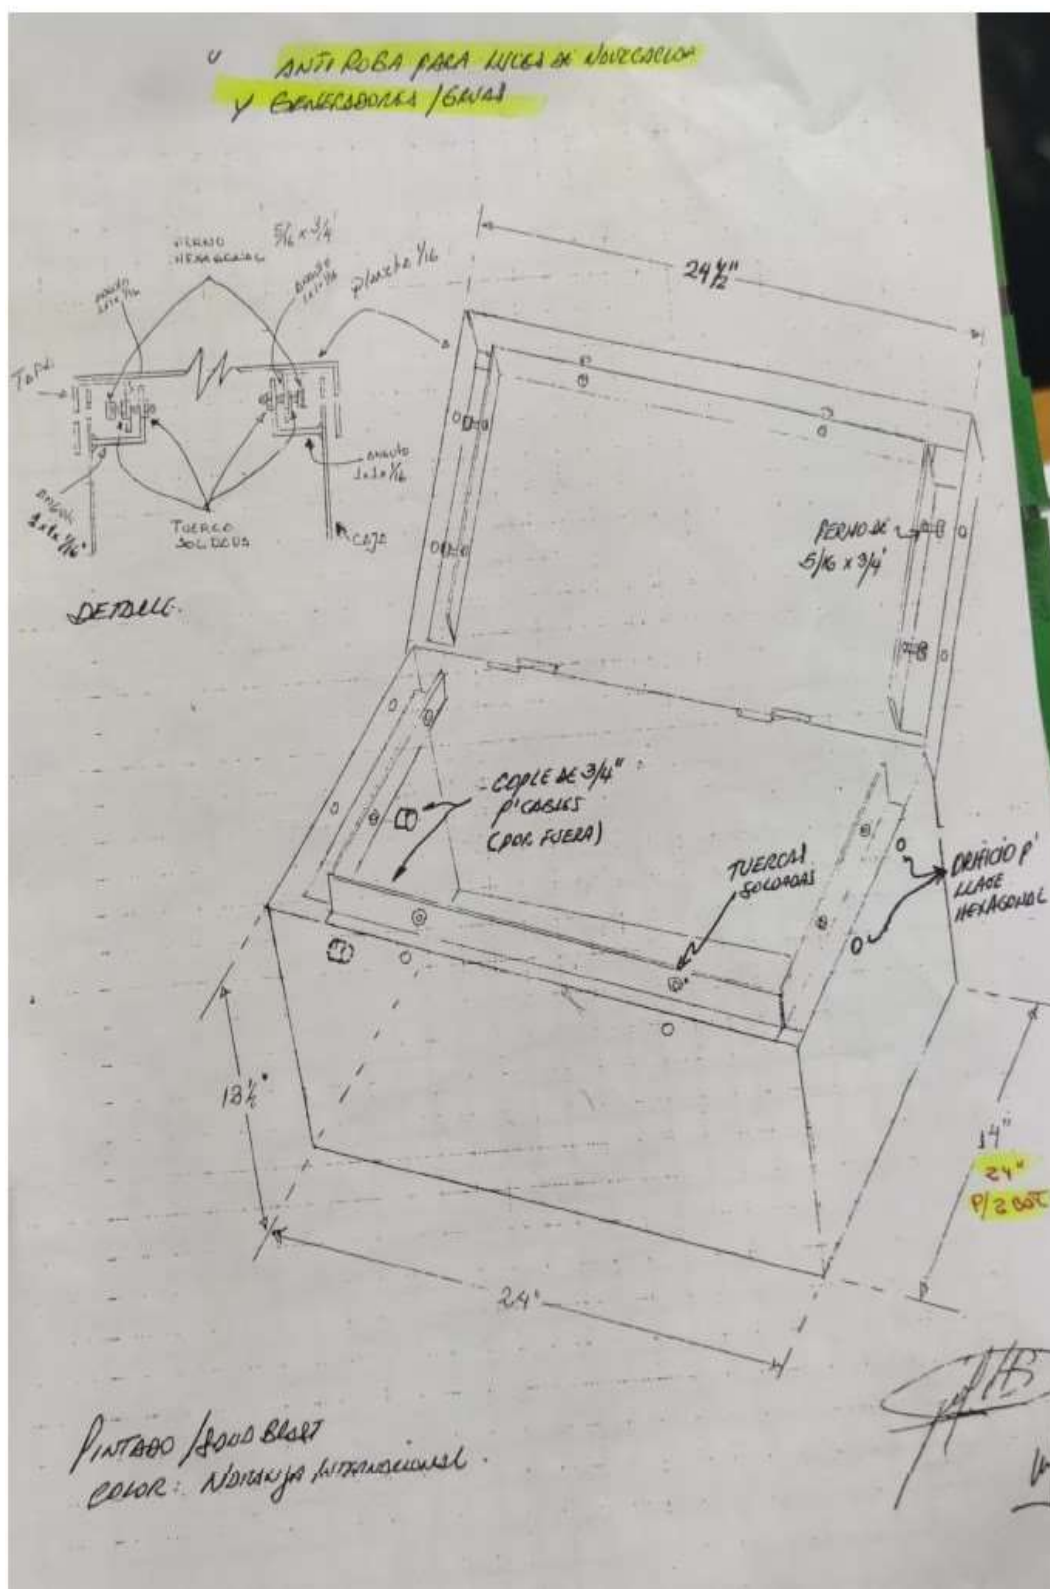 ANTI ROBA PARA LUCES DE NAVEGACION
Y GENERADORES / GRUAS
PERNO
HEXAGONAL
5/16 x 3/4"
ANGULO
1x1x1/16
ANGULO
1x1x1/16
plancha 1/16
TAPA
24 1/2"
ANGULO
1x1x1/16
ANGULO
1x1x1/16"
TUERCA
SOLDADA
CAJA
PERNO DE
5/16 x 3/4"
DETALLE.
- COPLE DE 3/4"
P' CABLES
(POR FUERA)
TUERCAS
SOLDADAS
ORIFICIO P'
LLAVE
HEXAGONAL
13 1/2"
14"
24"
P/2 BAT
24"
PINTADO / SAND BLAST
COLOR: NARANJA INTERNACIONAL.